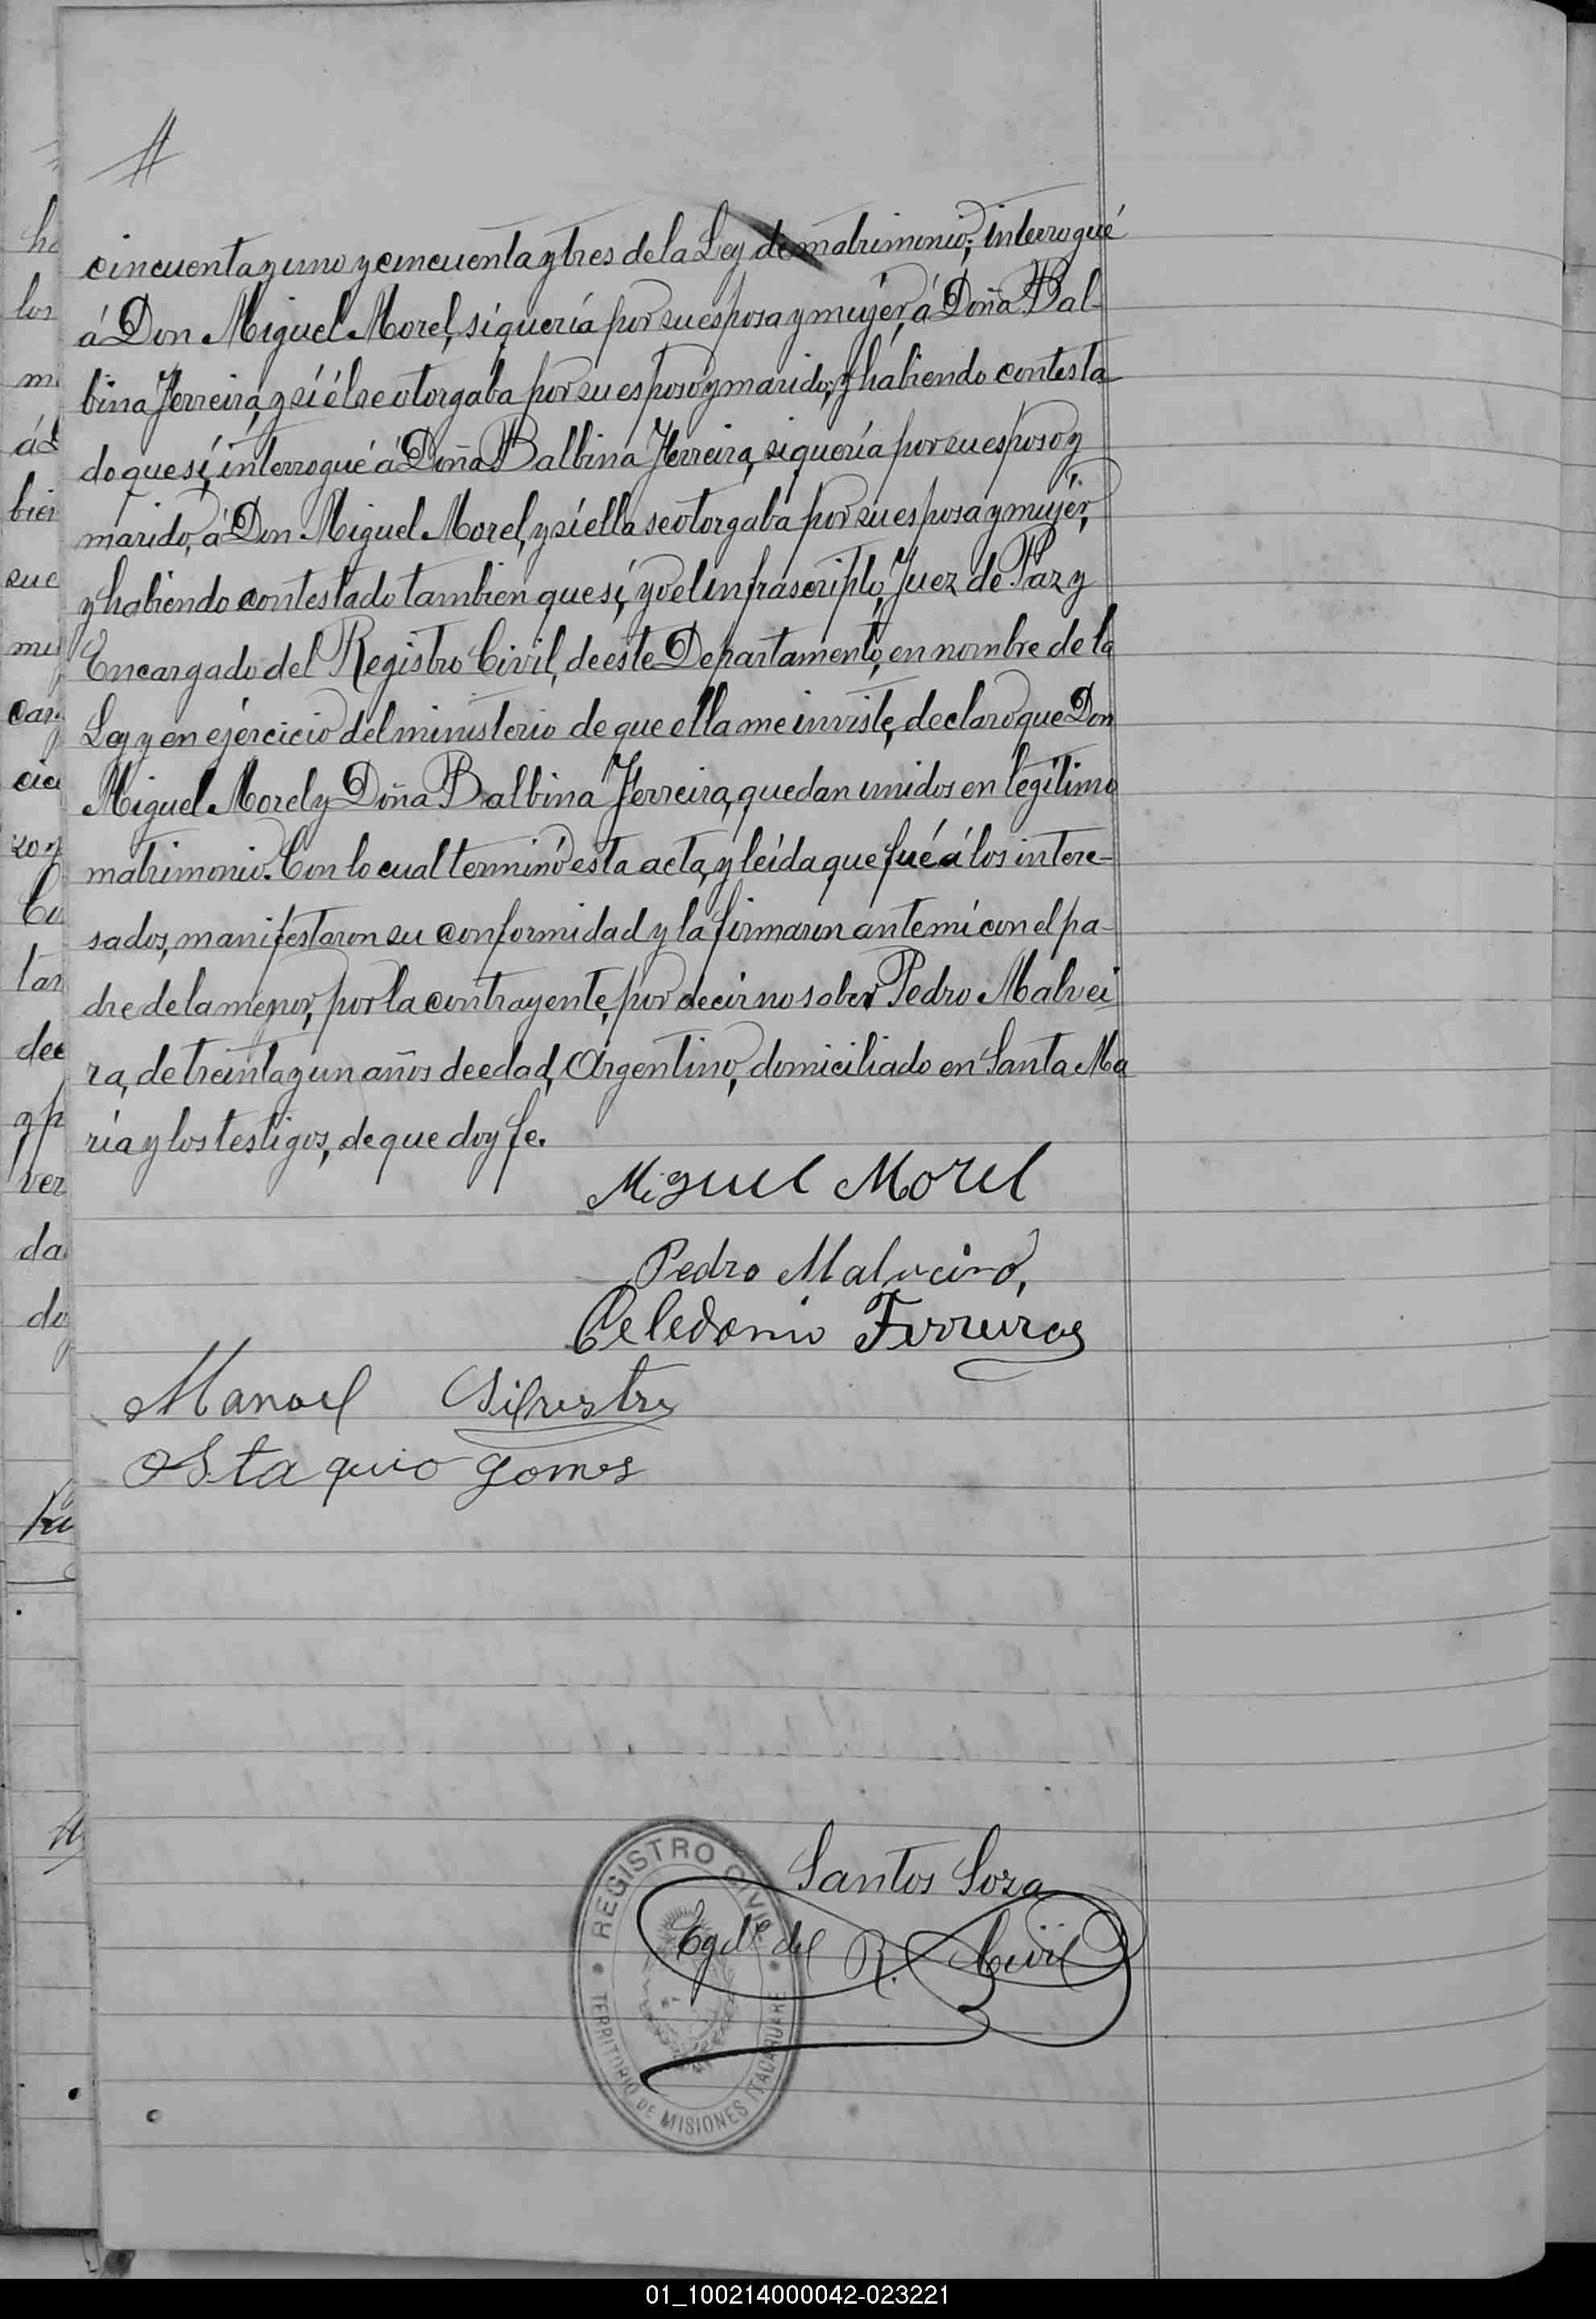 cincuenta y uno y cincuenta y tres de la Ley de matrimonio; interrogué
á Don Miguel Morel, si quería por su esposa y mujér, á Doña Bal-
bina Ferreira, y si él se otorgaba por su esposo y marido; y habiendo contesta
do que sí, interrogué á Doña Balbina Ferreira, si quería por su esposo y
marido, á Don Miguel Morel, y si ella se otorgaba por su esposa y mujér,
y habiendo contestado tambien que sí, yo el infrascripto, Juez de Paz y
Encargado del Registro Civil, de este Departamento, en nombre de la
Ley y en ejércicio del ministerio de que ella me inviste, declaro que Don
Miguel Morel y Doña Balbina Ferreira, quedan unidos en legítimo
matrimonio. Con lo cual terminó esta acta, y leída que fué á los intere-
sados, manifestaron su conformidad y la firmaron ante mí con el pa-
dre de la menor, por la contrayente, por decir no saber Pedro Malvei
ra, de treinta y un años de edad, Argentino, domiciliado en Santa Ma
ría y los testigos, de que doy fe.
Miguel Morel
Pedro
Celedonio Ferreira
Manoel Silvestre
Staquio gomes
Santos Soza
Egdo del R. Civil
REGISTRO CIVIL
TERRITORIO DE MISIONES ITACARUARE
01_100214000042-023221